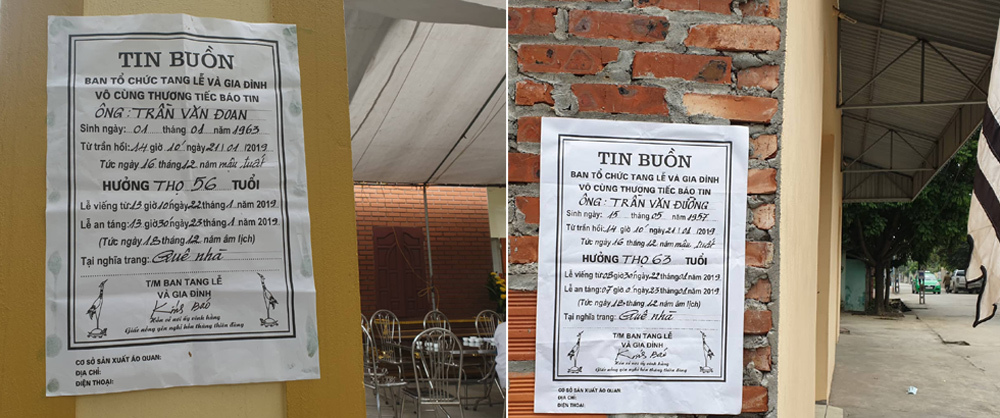 TIN BUỒN
BAN TỔ CHỨC TANG LỄ VÀ GIA ĐÌNH
VÔ CÙNG THƯƠNG TIẾC BÁO TIN
ÔNG: TRẦN VĂN ĐOAN
Sinh ngày: 01 tháng 01 năm 1963
Từ trần hồi: 14 giờ 10' ngày 21/01/2019
Tức ngày 16 tháng 12 năm mậu tuất
HƯỞNG THỌ 56 TUỔI
Lễ viếng từ: 15 giờ 10' ngày 22 tháng 1 năm 2019
Lễ an táng: 13 giờ 30 ngày 23 tháng 1 năm 2019
(Tức ngày 18 tháng 12 năm âm lịch)
Tại nghĩa trang: Quê nhà
T/M BAN TANG LỄ
VÀ GIA ĐÌNH
Kính Báo
Hồn về nơi ấy vĩnh hằng
Giấc nồng yên nghỉ bồng thăng thiên đàng
CƠ SỞ SẢN XUẤT ÁO QUAN:
ĐỊA CHỈ:
ĐIỆN THOẠI:
TIN BUỒN
BAN TỔ CHỨC TANG LỄ VÀ GIA ĐÌNH
VÔ CÙNG THƯƠNG TIẾC BÁO TIN
ÔNG: TRẦN VĂN DƯỠNG
Sinh ngày: 15 tháng 05 năm 1957
Từ trần hồi: 14 giờ 10' ngày 21/01/2019
Tức ngày 16 tháng 12 năm mậu tuất
HƯỞNG THỌ 63 TUỔI
Lễ viếng từ: 08 giờ 30 ngày 22 tháng 01 năm 2019
Lễ an táng: 07 giờ 0' ngày 23 tháng 01 năm 2019
(Tức ngày 18 tháng 12 năm âm lịch)
Tại nghĩa trang: Quê nhà
T/M BAN TANG LỄ
VÀ GIA ĐÌNH
Kính Báo
Hồn về nơi ấy vĩnh hằng
Giấc nồng yên nghỉ bồng thăng thiên đàng
CƠ SỞ SẢN XUẤT ÁO QUAN:
ĐỊA CHỈ:
ĐIỆN THOẠI: